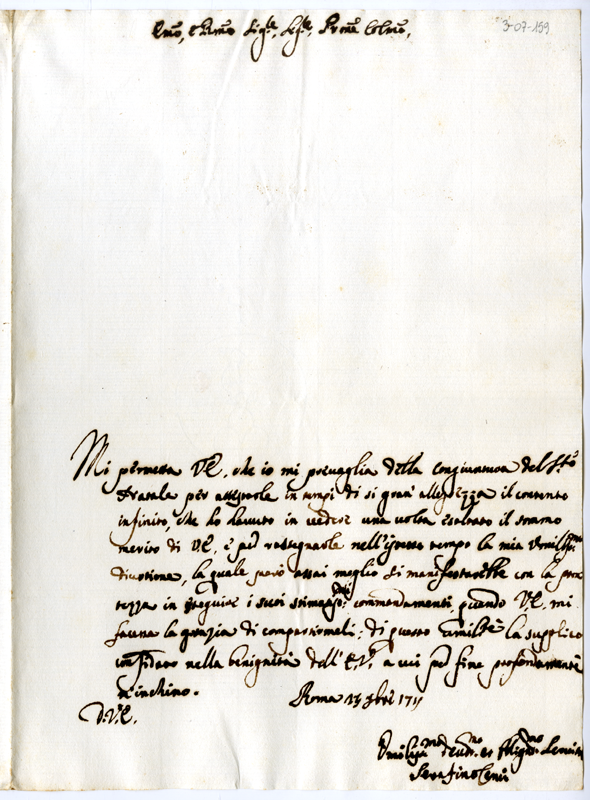 3-07-159
Emõ, e Rmõ Sigre, Sigre, Prone Colmõ,
Mi permetta V.E. che io mi prevaglia della congiuntura del Sto
Natale per attestarle in tempi di sì gran allegrezza il contento
infinito, che ho havuto in vedere una volta esaltato il sommo
merito di V.E. e per rassegnarle nell'istesso tempo la mia Umilissma
divotione, la quale però assai meglio si manifestarebbe con la pron
tezza in eseguire i suoi stimatissmi commandamenti quando V.E. mi
facesse la grazia di compartirmeli; di questo la supplico
confidato nella benignità dell'E.V. a cui per fine profondamente
m'inchino.
Roma 1711
D.V.E.
Umilissmo Devmo et Obligmo Servitre
Serafino Cenni